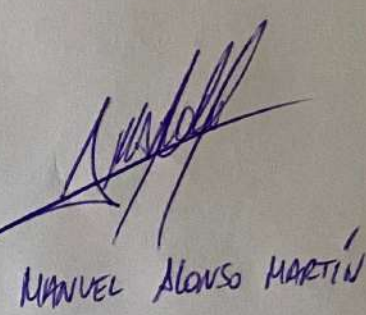 MANUEL ALONSO MARTÍN